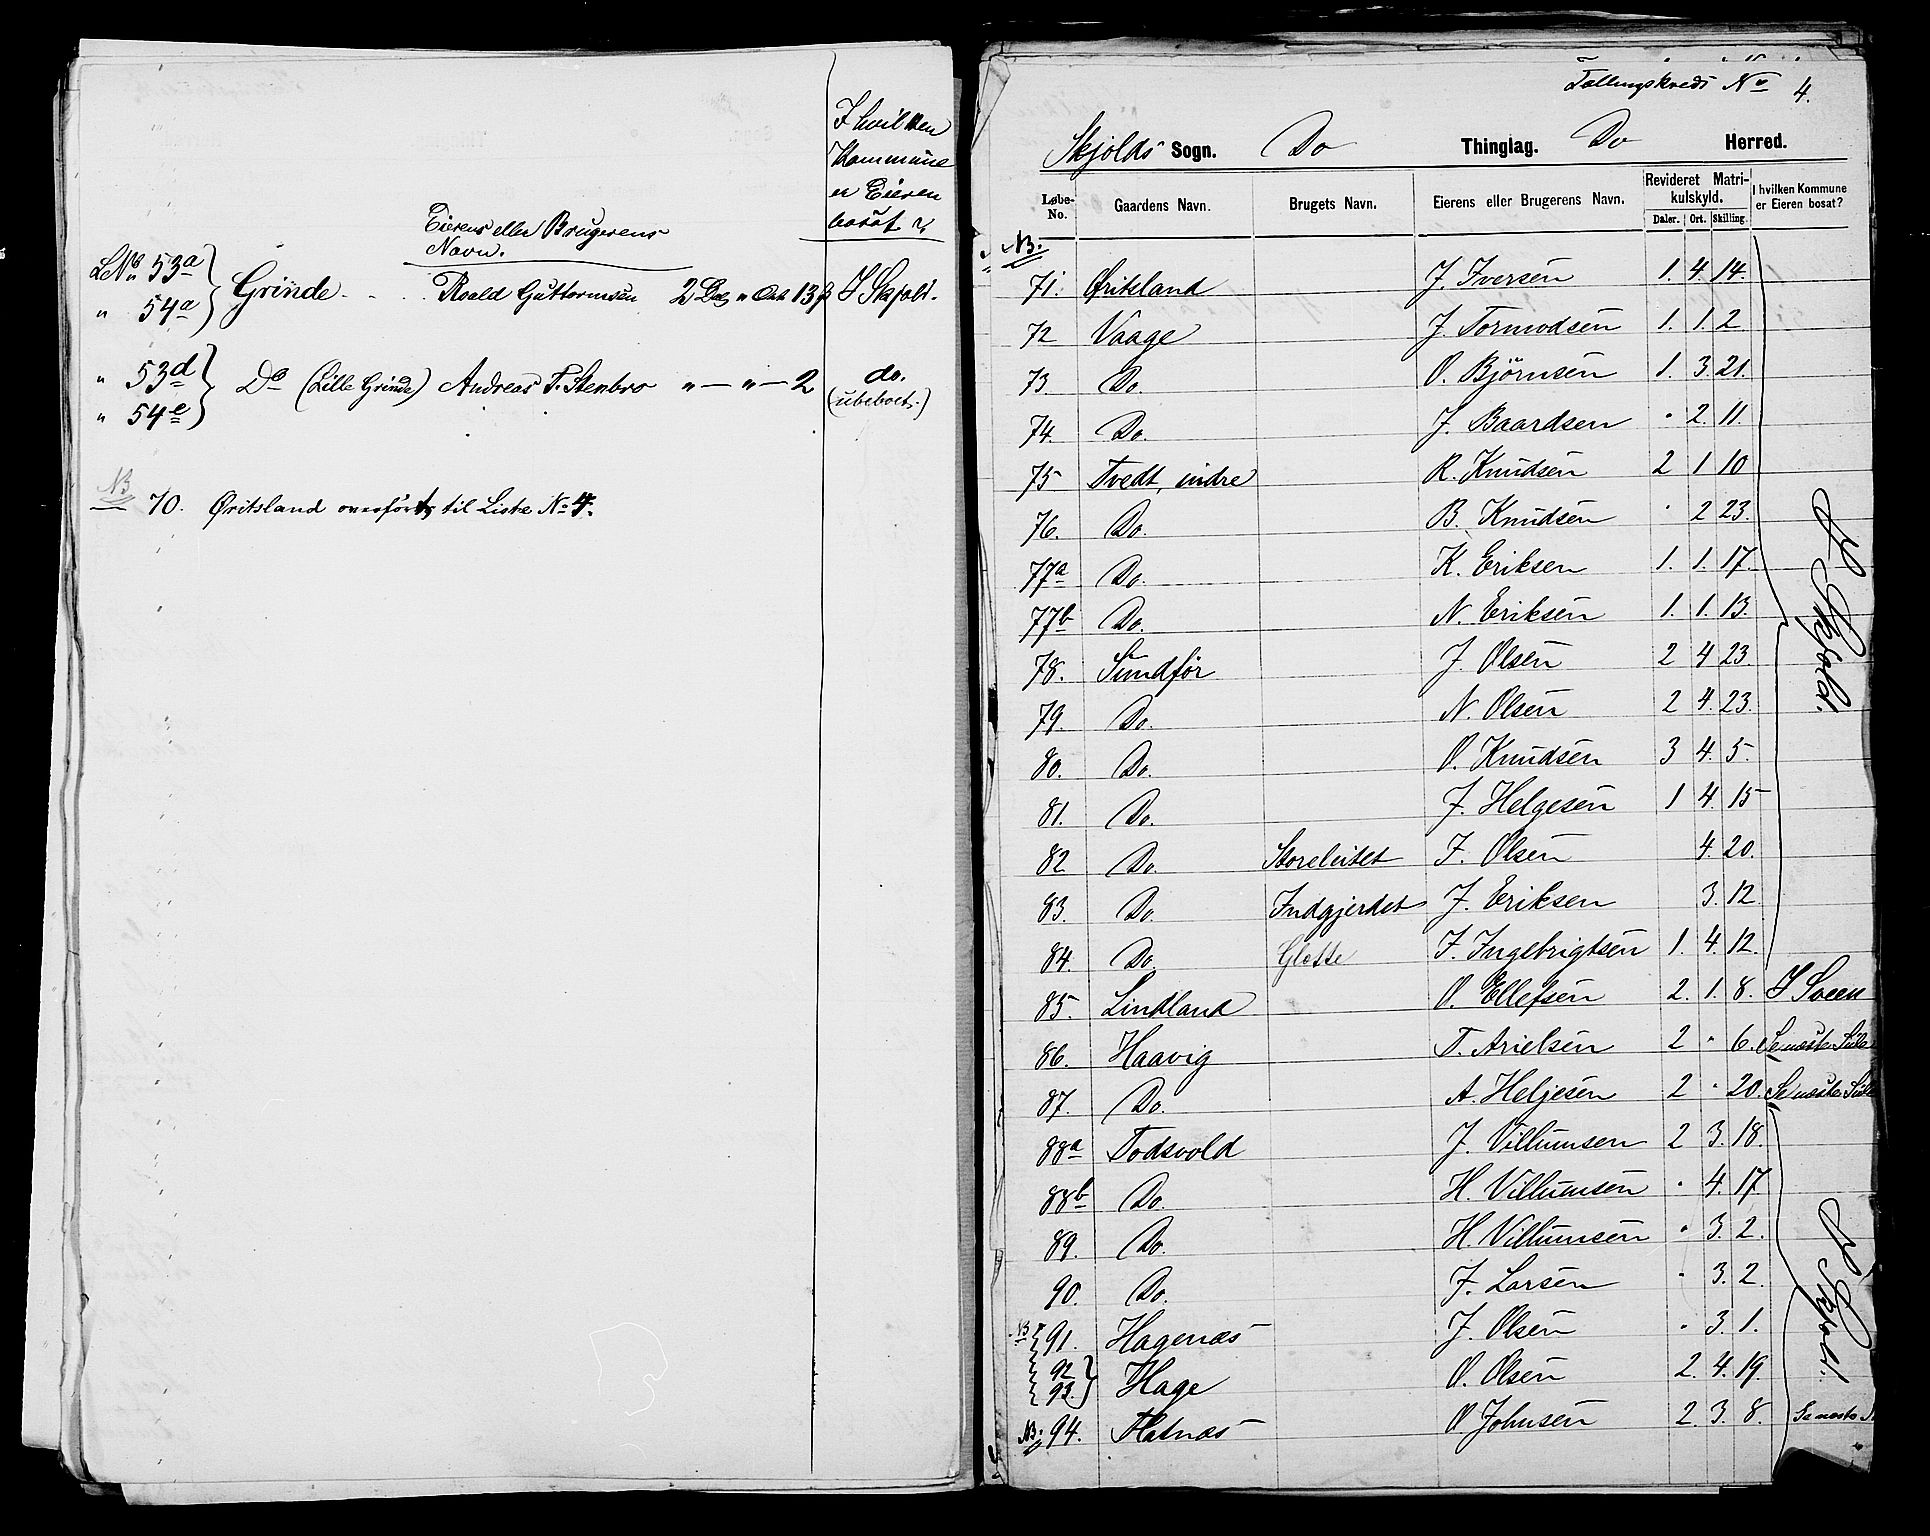 I hvilken
Kommune
er Eieren
bosat?
Eierens eller Brugerens
Navn.
LNo 53a
" 54a } Grinde - - Roald Guttormsen 2 Dlr " Ort 13 ß I Skjold.
" 53d
" 54e } Do (Lille Grinde) Andreas T. Stenbro " — " — 2 do.
(ubeboet.)
NB 70. Øritsland overføres til Liste No 4.
Tællingskreds No 4.
Skjolds Sogn. Do Thinglag. Do Herred.
Løbe-No. Gaardens Navn. Brugets Navn. Eierens eller Brugerens Navn. Revideret Matrikulskyld. Daler. Ort. Skilling. I hvilken Kommune er Eieren bosat?
NB.
71. Øritsland J. Iversen 1. 4. 14.
72 Vaage J. Tormodsen 1. 1. 2
73. Do. O. Bjørnsen 1. 3. 21.
74. Do. J. Baardsen " 2. 11.
75 Tvedt, indre R. Knudsen 2 1 10
76. Do. B. Knudsen " 2 23.
77a Do. K. Eriksen 1. 1. 17.
77b Do. N. Eriksen 1. 1. 13.
78. Sundfør J. Olsen 2 4 23.
79. Do. N. Olsen 2 4. 23.
80. Do. O. Knudsen 3 4. 5.
81. Do. J. Helgesen 1 4. 15
82 Do. Storeleitet J. Olsen 4. 20.
83. Do. Indgjerdet J. Eriksen 3. 12
84. Do. Glette J. Ingebrigtsen 1. 4. 12.
I Skjold.
85. Lindland O. Ellefsen 2. 1. 8. I Sveen
86. Haavig T. Arielsen 2 " 6. Se næste Side
87. Do. A. Heljesen 2 " 20. Se næste Side
88a Todsvold J. Villumsen 2 3. 18.
88b Do. H. Villumsen " 4. 17
89. Do. H. Villumsen " 3. 2.
90. Do. J. Larsen " 3. 2.
NB 91. Hagenæs J. Olsen " 3. 1.
92
93. } Hage O. Olsen 2. 4. 19.
I Skjold.
NB. 94. Flatnæs O Johnsen 2. 3. 8. Se næste